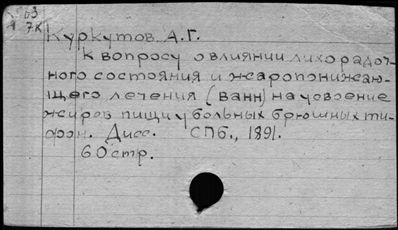 63
7к
Куркутов. А.Г.
К вопросу о влиянии лихорадоч-
ного состояния и жаропонижаю-
щего лечения (ванн) на усвоение
жиров пищи у больных брюшных ти-
фом. Дисс. СПб., 1891.
60 стр.